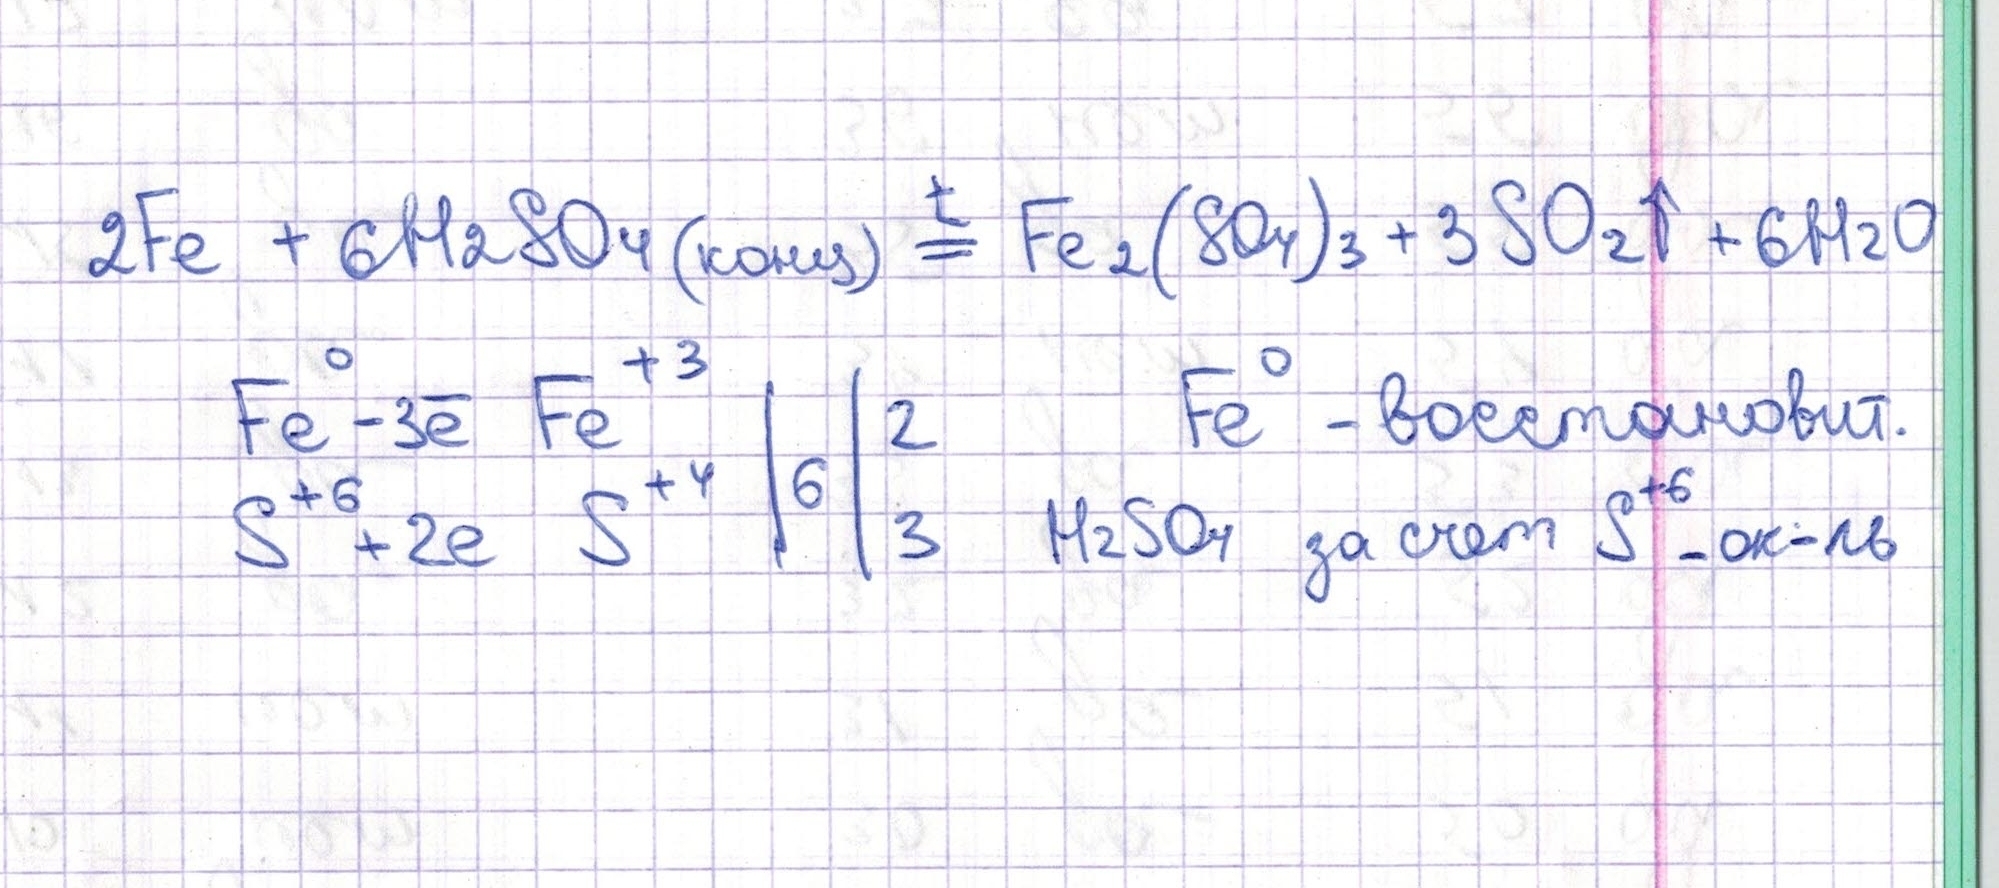 2Fe + 6H2SO4 (конц) =t= Fe2(SO4)3 + 3SO2↑ + 6H2O
Fe⁰ -3ē Fe⁺³ | | 2 Fe⁰ - восстановит.
S⁺⁶ +2e S⁺⁴ | 6 | 3 H2SO4 за счет S⁺⁶ - ок-ль